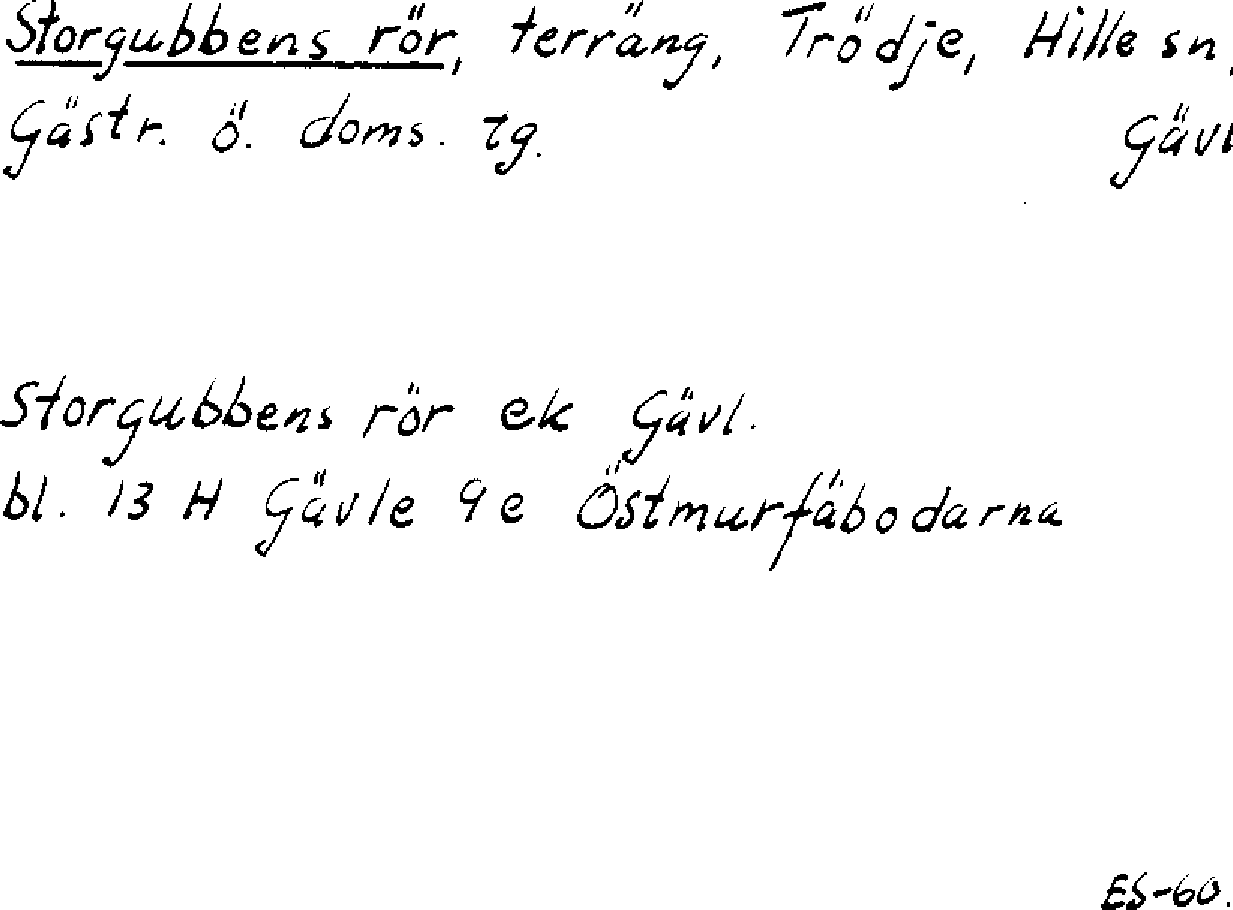 Storgubbens rör, terräng, Trödje, Hille sn,
Gästr. ö. doms. tg. Gävl
Storgubbens rör ek Gävl.
bl. 13 H Gävle 9e Östmurfäbodarna
ES-60.